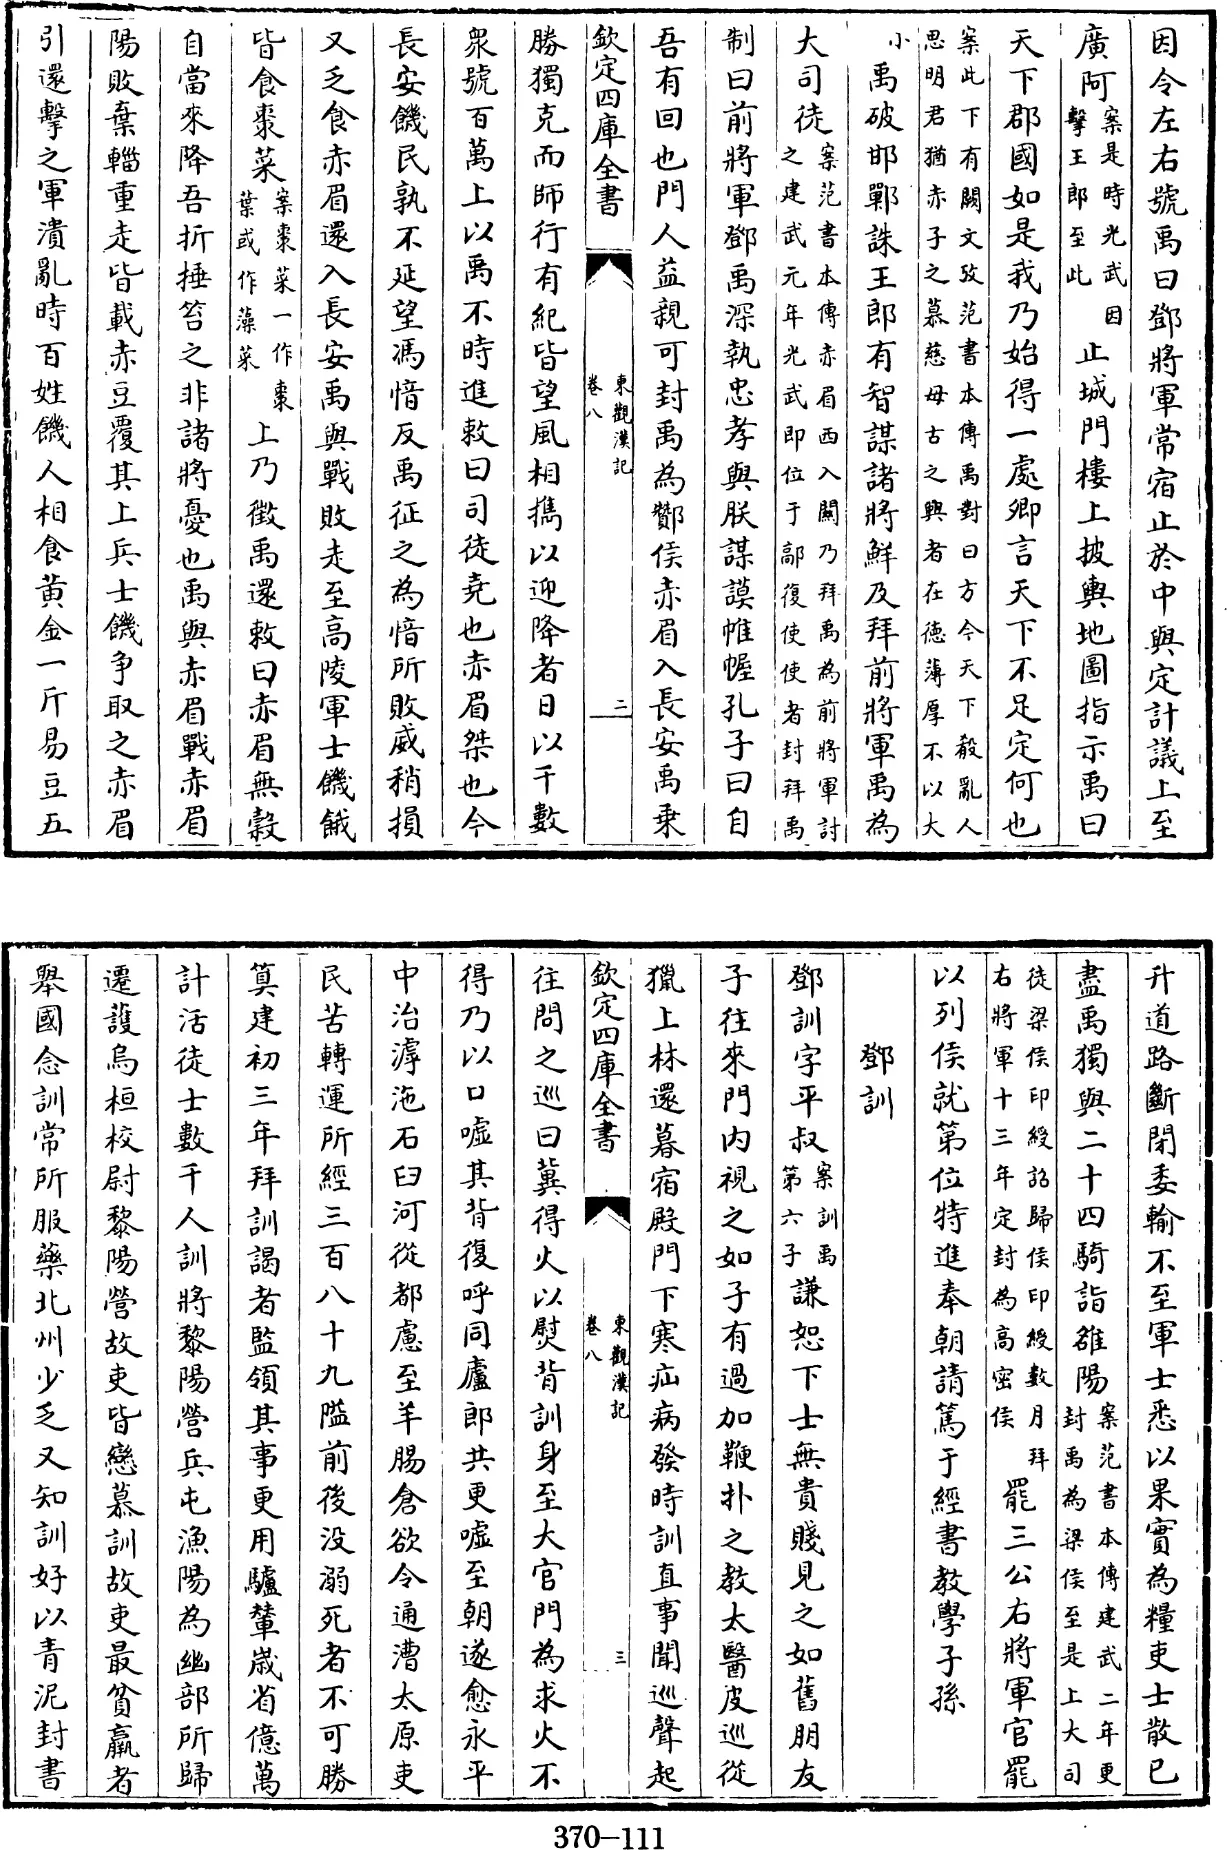 因令左右號禹曰鄧將軍常宿止於中與定計議上至
廣阿案是時光武因擊王郎至此止城門樓上披輿地圖指示禹曰
天下郡國如是我乃始得一處卿言天下不足定何也
案此下有闕文攷范書本傳禹對曰方今天下殽亂人思明君猶赤子之慕慈母古之興者在德薄厚不以大
小禹破邯鄲誅王郎有智謀諸將鮮及拜前將軍禹為
大司徒案范書本傳赤眉西入關乃拜禹為前將軍討之建武元年光武即位于鄗復使使者封拜禹
制曰前將軍鄧禹深執忠孝與朕謀謨帷幄孔子曰自
吾有回也門人益親可封禹為酇侯赤眉入長安禹乗
欽定四庫全書
東觀漢記
卷八
二
勝獨克而師行有紀皆望風相擕以迎降者日以千數
衆號百萬上以禹不時進敕曰司徒堯也赤眉桀也今
長安饑民孰不延望馮愔反禹征之為愔所敗威稍損
又乏食赤眉還入長安禹與戰敗走至高陵軍士饑餓
皆食棗菜案棗菜一作棗葉或作藻菜上乃徵禹還敕曰赤眉無穀
自當來降吾折捶笞之非諸將憂也禹與赤眉戰赤眉
陽敗棄輜重走皆載赤豆覆其上兵士饑争取之赤眉
引還擊之軍潰亂時百姓饑人相食黄金一斤易豆五
升道路斷閉委輸不至軍士悉以果實為糧吏士散已
盡禹獨與二十四騎詣雒陽案范書本傳建武二年更封禹為梁侯至是上大司
徒梁侯印綬詔歸侯印綬數月拜右將軍十三年定封為高密侯罷三公右將軍官罷
以列侯就第位特進奉朝請篤于經書教學子孫
鄧訓
鄧訓字平叔案訓禹第六子謙恕下士無貴賤見之如舊朋友
子往來門内視之如子有過加鞭扑之教太醫皮巡從
獵上林還暮宿殿門下寒疝病發時訓直事聞巡聲起
欽定四庫全書
東觀漢記
卷八
三
往問之巡曰冀得火以熨背訓身至大官門為求火不
得乃以口噓其背復呼同廬郎共更噓至朝遂愈永平
中治滹沱石臼河從都慮至羊腸倉欲令通漕太原吏
民苦轉運所經三百八十九隘前後没溺死者不可勝
筭建初三年拜訓謁者監領其事更用驢輦歲省億萬
計活徒士數千人訓將黎陽營兵屯漁陽為幽部所歸
遷護烏桓校尉黎陽營故吏皆戀慕訓故吏最貧羸者
舉國念訓常所服藥北州少乏又知訓好以青泥封書
370-111